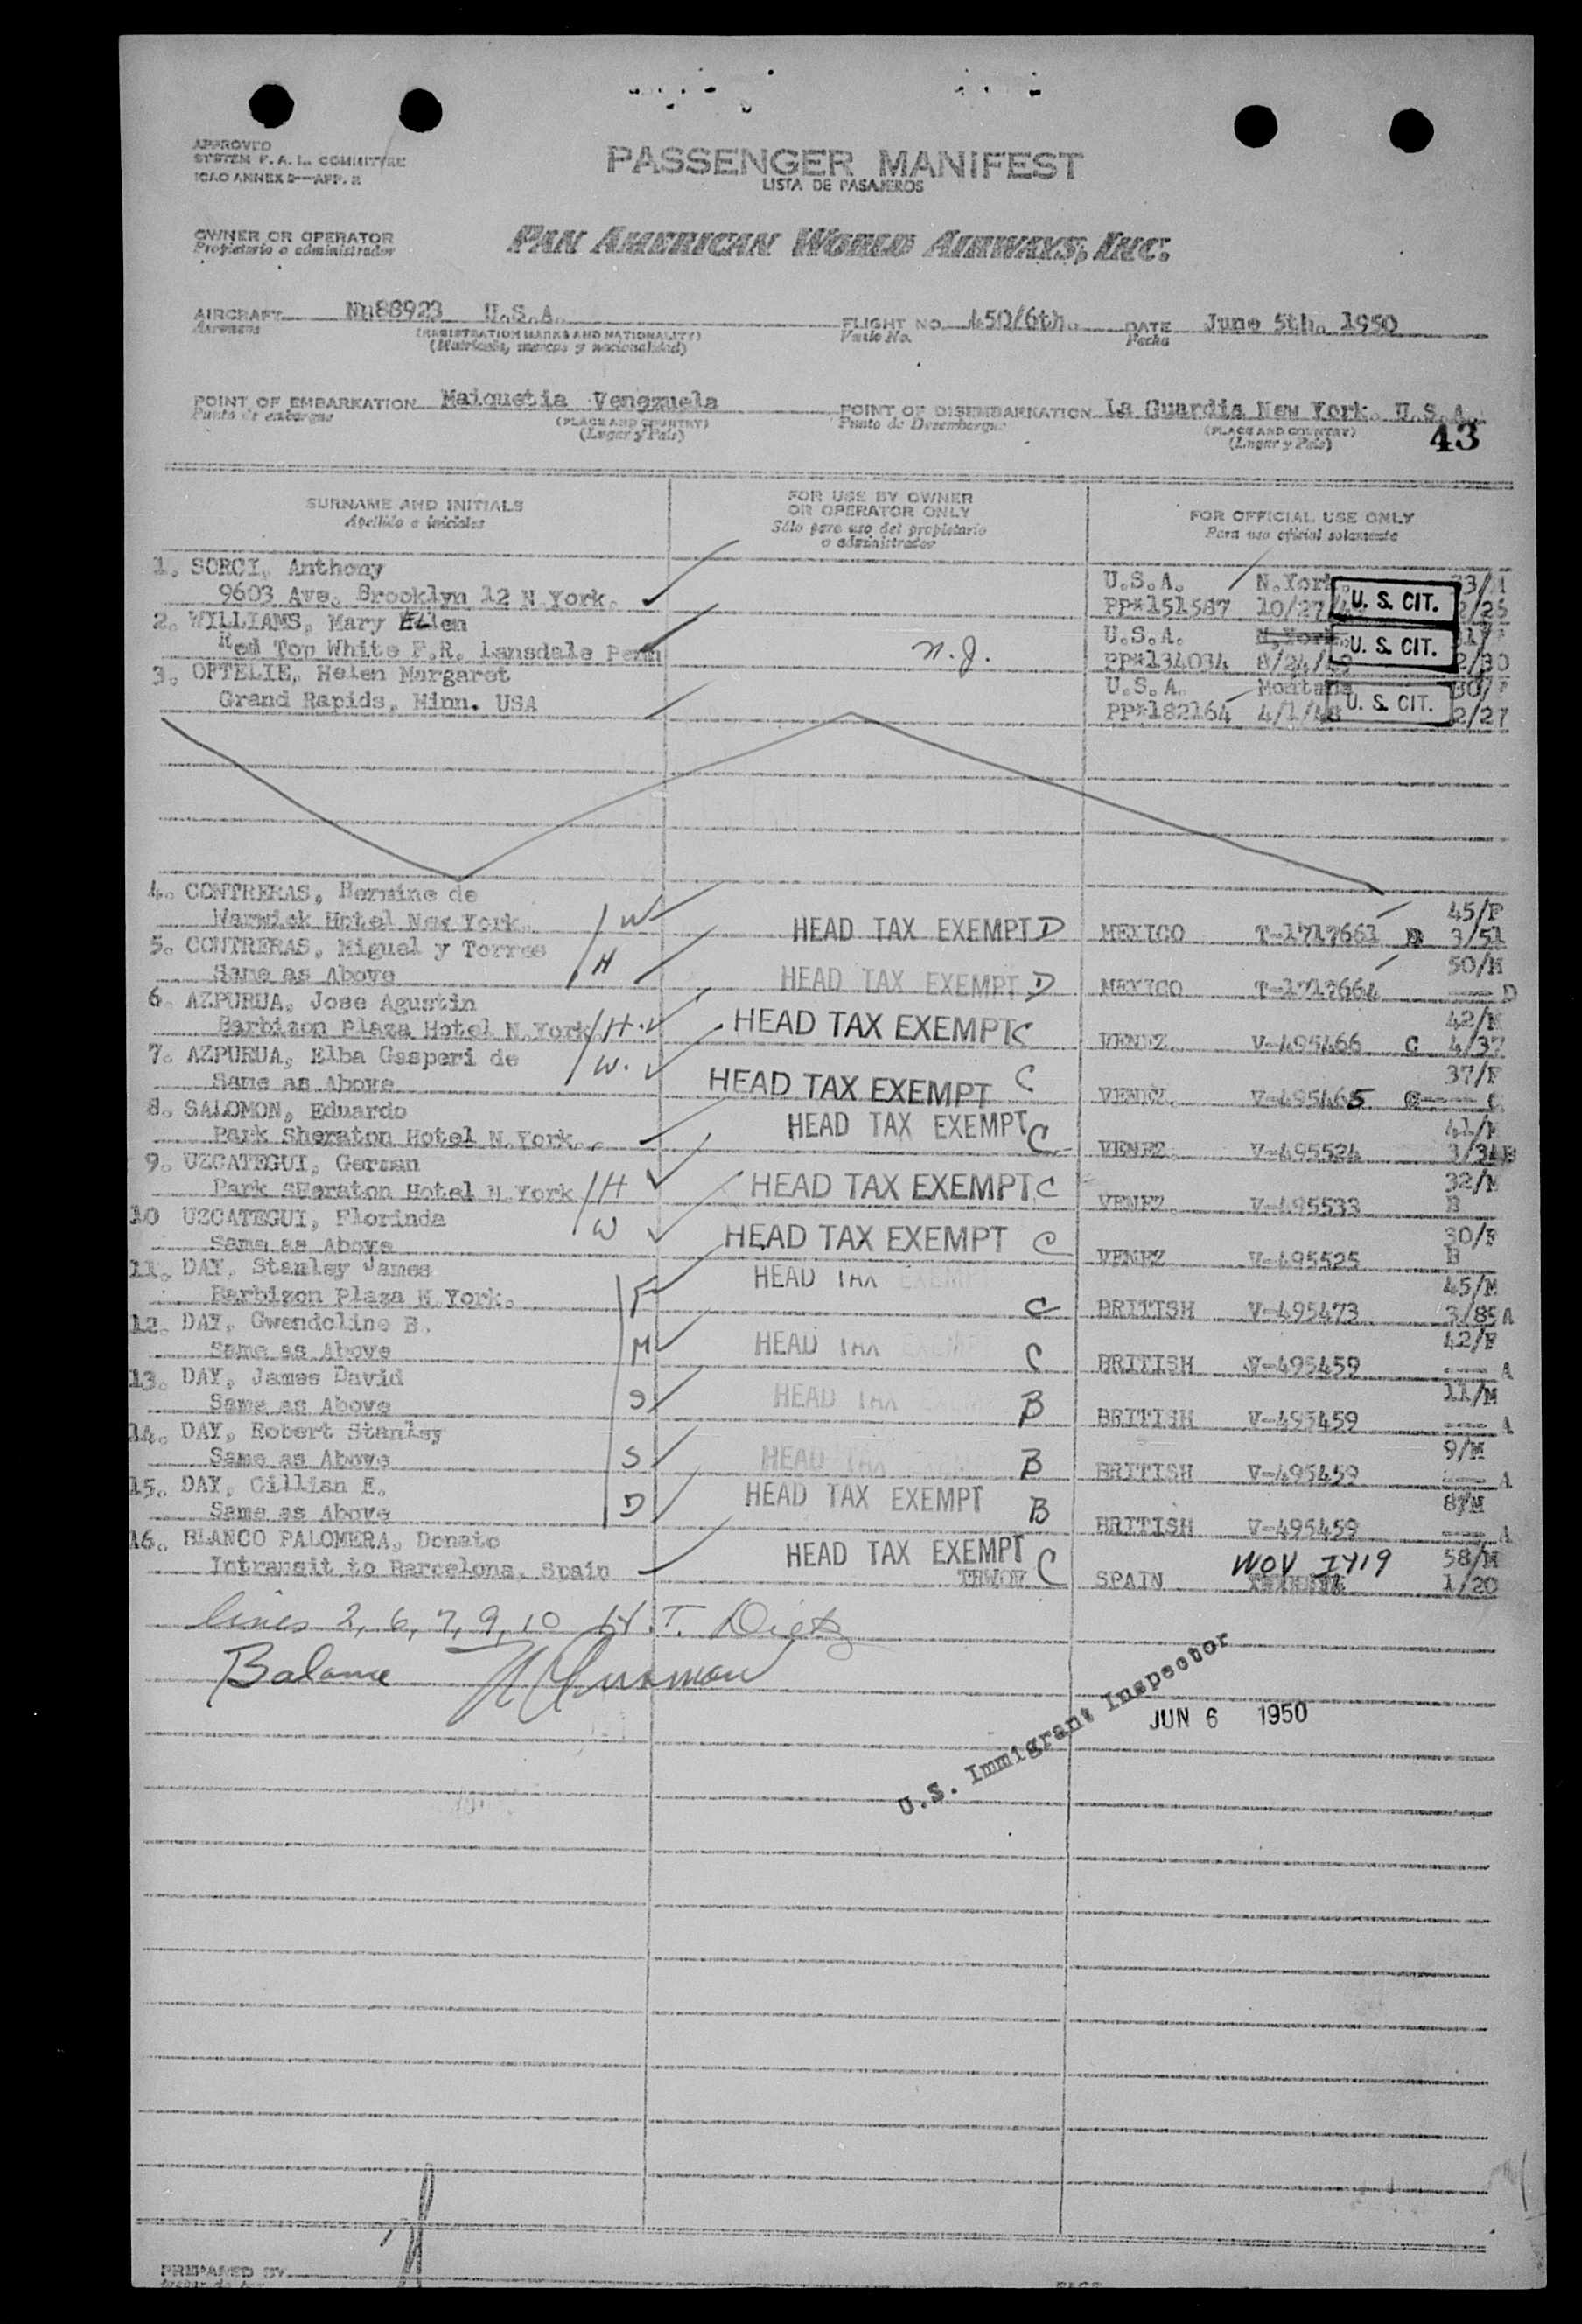 APPROVED
SYSTEM F. A. L. COMMITTEE
ICAO ANNEX 9—APP. 2
PASSENGER MANIFEST
LISTA DE PASAJEROS
OWNER OR OPERATOR
Propietario o administrador
PAN AMERICAN WORLD AIRWAYS, INC.
AIRCRAFT Nu88923 U.S.A. FLIGHT NO. 450/6th. DATE June 5th. 1950
Aeronave (REGISTRATION MARKS AND NATIONALITY) Vuelo No. Fecha
(Matrícula, marcas y nacionalidad)
POINT OF EMBARKATION Maiquetia Venezuela POINT OF DISEMBARKATION La Guardia New York. U.S.A.
Punto de embarque (PLACE AND COUNTRY) Punto de Desembarque (PLACE AND COUNTRY)
(Lugar y País) (Lugar y País) 43
SURNAME AND INITIALS FOR USE BY OWNER OR OPERATOR ONLY FOR OFFICIAL USE ONLY
Apellido e iniciales Sólo para uso del propietario o administrador Para uso oficial solamente
1. SORCI, Anthony U.S.A. N.York.
9603 Ave. Brooklyn 12 N York. PP#151587 10/27 U. S. CIT. 2/26
2. WILLIAMS, Mary Ellen U.S.A. N.York
Red Top White F.R. Lansdale Penn N.J. PP#134034 8/24/49 U. S. CIT. 2/30
3. OPTELIE, Helen Margaret U.S.A. Montana 30/F
Grand Rapids, Minn. USA PP#182164 4/1/48 U. S. CIT. 2/27
4. CONTRERAS, Hermine de 45/F
Warwick Hotel New York. W HEAD TAX EXEMPT D MEXICO T-1717661 D 3/51
5. CONTRERAS, Miguel y Torres 50/M
Same as Above H HEAD TAX EXEMPT D MEXICO T-1717664 ---- D
6. AZPURUA, Jose Agustin 42/M
Barbizon Plaza Hotel N.York H. HEAD TAX EXEMPT C VENEZ. V-495466 C 4/37
7. AZPURUA, Elba Gasperi de 37/F
Same as Above W. HEAD TAX EXEMPT C VENEZ. V-495465 C ---- C
8. SALOMON, Eduardo
Park Sheraton Hotel N.York. HEAD TAX EXEMPT C VENEZ. V-495524
9. UZCATEGUI, German 32/M
Park SHeraton Hotel N York H HEAD TAX EXEMPT C VENEZ. V-495533 B
10 UZCATEGUI, Florinda 30/F
Same as Above W HEAD TAX EXEMPT C VENEZ V-495525 B
11. DAY, Stanley James HEAD TAX EXEMPT 45/M
Barbizon Plaza N.York. F C BRITISH V-495473 3/85 A
12. DAY, Gwendoline B. 42/F
Same as Above M HEAD TAX EXEMPT C BRITISH V-495459 ---- A
13. DAY, James David 11/M
Same as Above S HEAD TAX B BRITISH V-495459 ---- A
14. DAY, Robert Stanley 9/M
Same as Above S HEAD TAX B BRITISH V-495459 ---- A
15. DAY, Gillian E. 8/M
Same as Above D HEAD TAX EXEMPT B BRITISH V-495459 ---- A
16. BLANCO PALOMERA, Donato HEAD TAX EXEMPT WOV 1419 58/M
Intransit to Barcelona, Spain TRWOV C SPAIN 1/20
lines 2, 6, 7, 9, 10 H. T. Dietz
Balance
U.S. Immigrant Inspector
JUN 6 1950
PREPARED BY